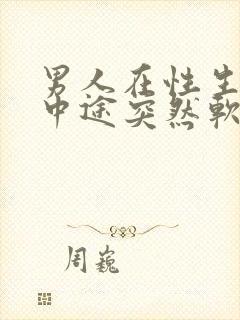 男人在性生
中途突然軟
周巍